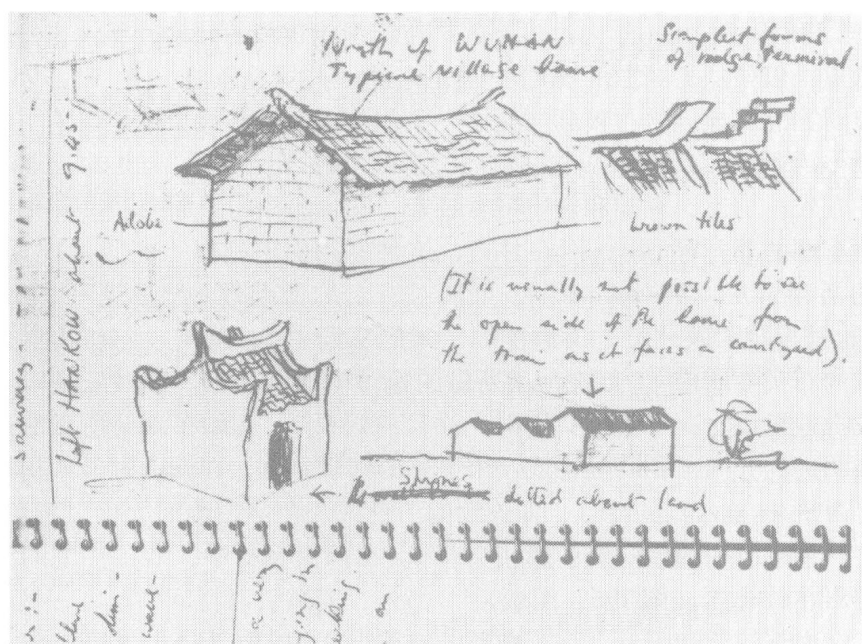 North of WUHAN
Typical village house
Simplest forms
of ridge terminal.
Adobe
brown tiles
(It is usually not possible to see
the open side of the house from
the train as it faces a courtyard).
Shrines
dotted about land
Left HANKOW about 9.45
a very